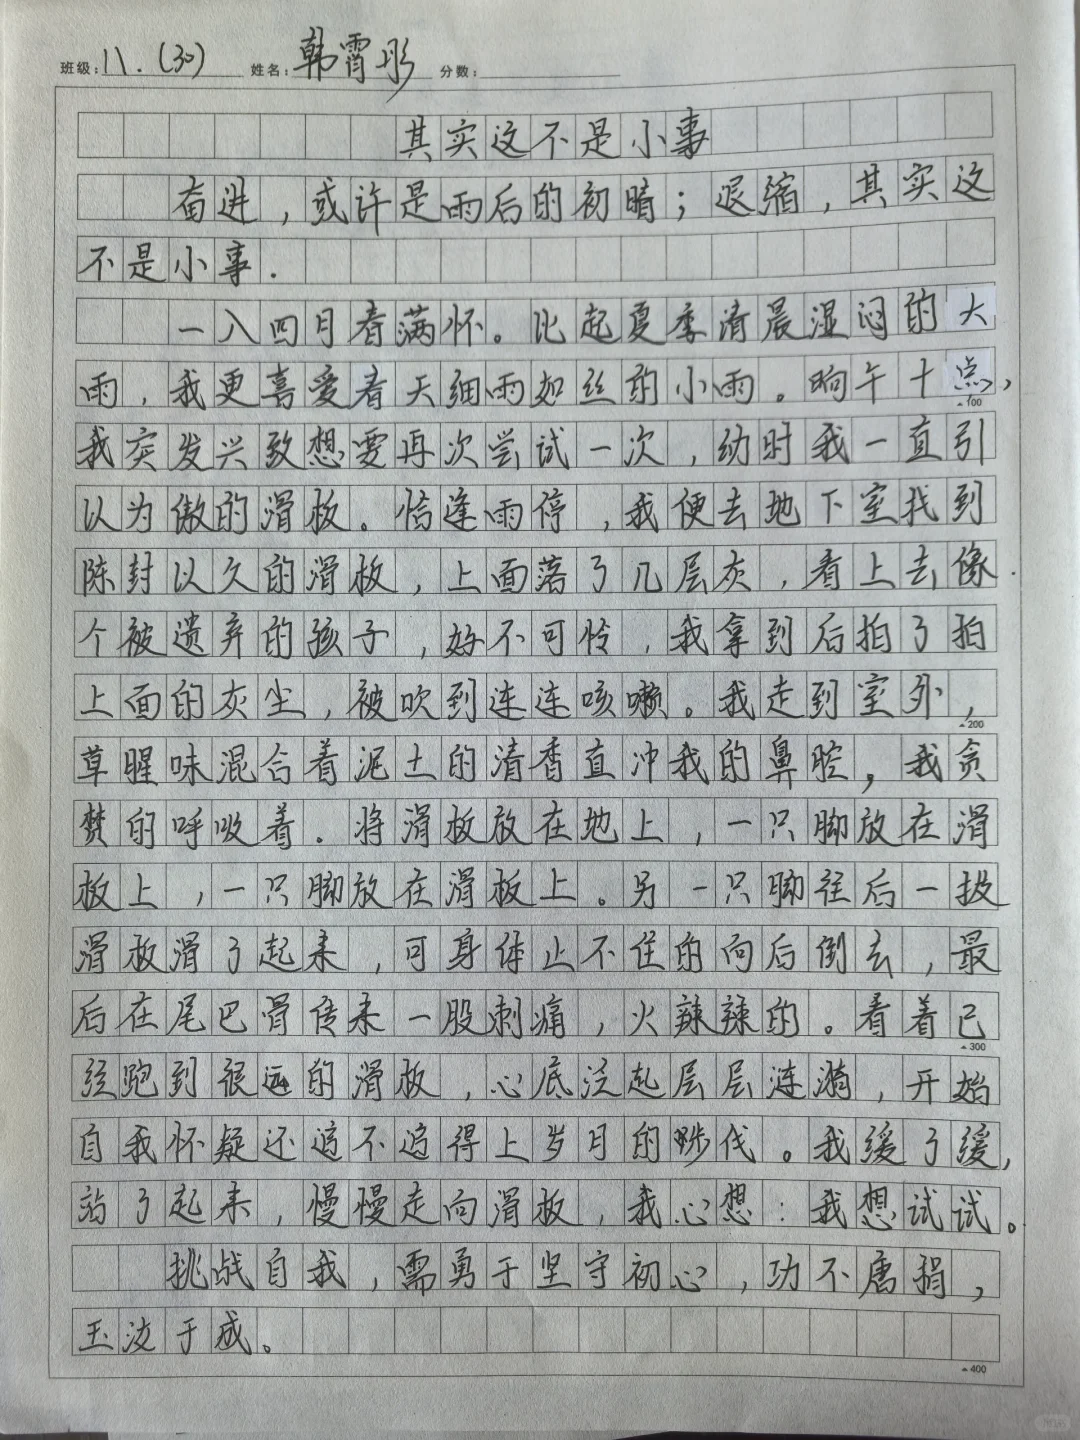 班级：11.(30) 姓名：韩霄彤 分数：
其实这不是小事
奋进，或许是雨后的初晴；退缩，其实这
不是小事.
一入四月春满怀。比起夏季清晨湿闷的大
雨，我更喜爱春天细雨如丝的小雨。晌午十点，
100
我突发兴致想要再次尝试一次，幼时我一直引
以为傲的滑板。恰逢雨停，我便去地下室找到
陈封以久的滑板，上面落了几层灰，看上去像
个被遗弃的孩子，好不可怜，我拿到后拍了拍
上面的灰尘，被吹到连连咳嗽。我走到室外，
200
草腥味混合着泥土的清香直冲我的鼻腔，我贪
婪的呼吸着.将滑板放在地上，一只脚放在滑
板上，一只脚放在滑板上。另一只脚往后一拨
滑板滑了起来，可身体止不住的向后倒去，最
后在尾巴骨传来一股刺痛，火辣辣的。看着已
300
经跑到很远的滑板，心底泛起层层涟漪，开始
自我怀疑还追不追得上岁月的步伐。我缓了缓，
站了起来，慢慢走向滑板，我心想：我想试试。
挑战自我，需勇于坚守初心，功不唐捐，
玉汝于成。
400